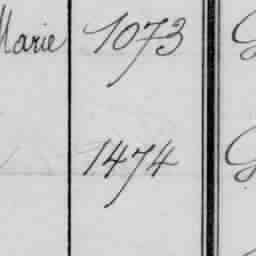 Marie 1073
1474